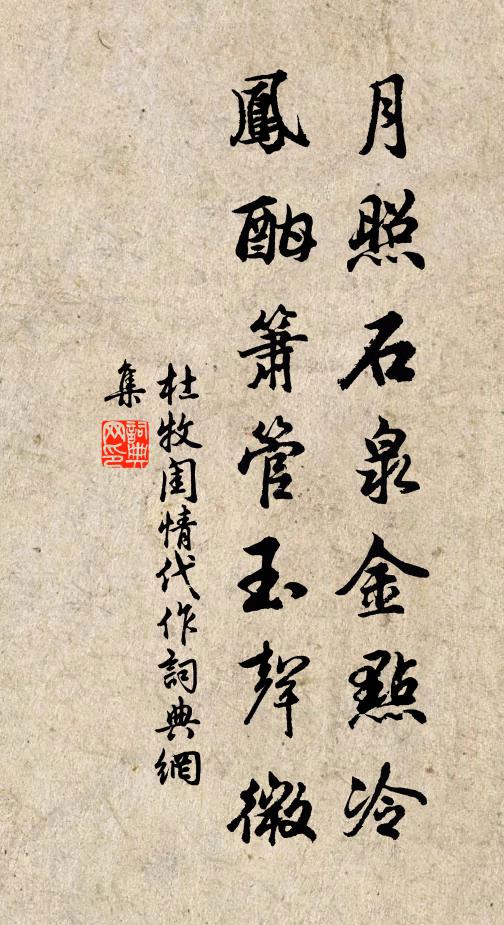 月照石泉金點冷
鳳酣簫管玉聲微
杜牧閨情代作詞典網
集
詞典網印